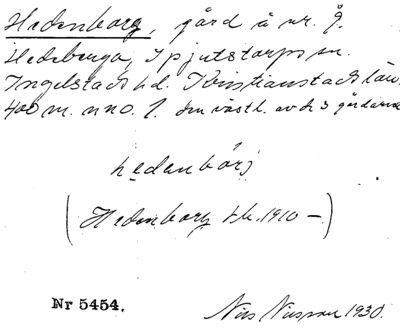 Hedenborg, gård å nr. 9.
Hedeberga, Spjutstorps sn.
Ingelstads hd. Kristianstads län.
400 m. nno. 1. den västl. av de 3 gårdarna
hedenbórj
(Hedenborg jb. 1910 –)
Nr 5454. Nils Nilsson 1930.